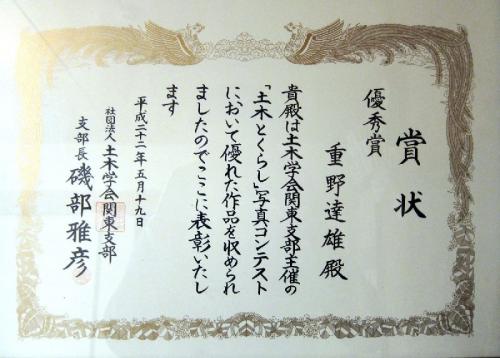 賞状
優秀賞
重野達雄殿
貴殿は土木学会関東支部主催の
「土木とくらし」写真コンテスト
において優れた作品を収められ
ましたのでここに表彰いたし
ます
平成二十一年五月十九日
社団法人土木学会関東支部
支部長 磯部雅彦